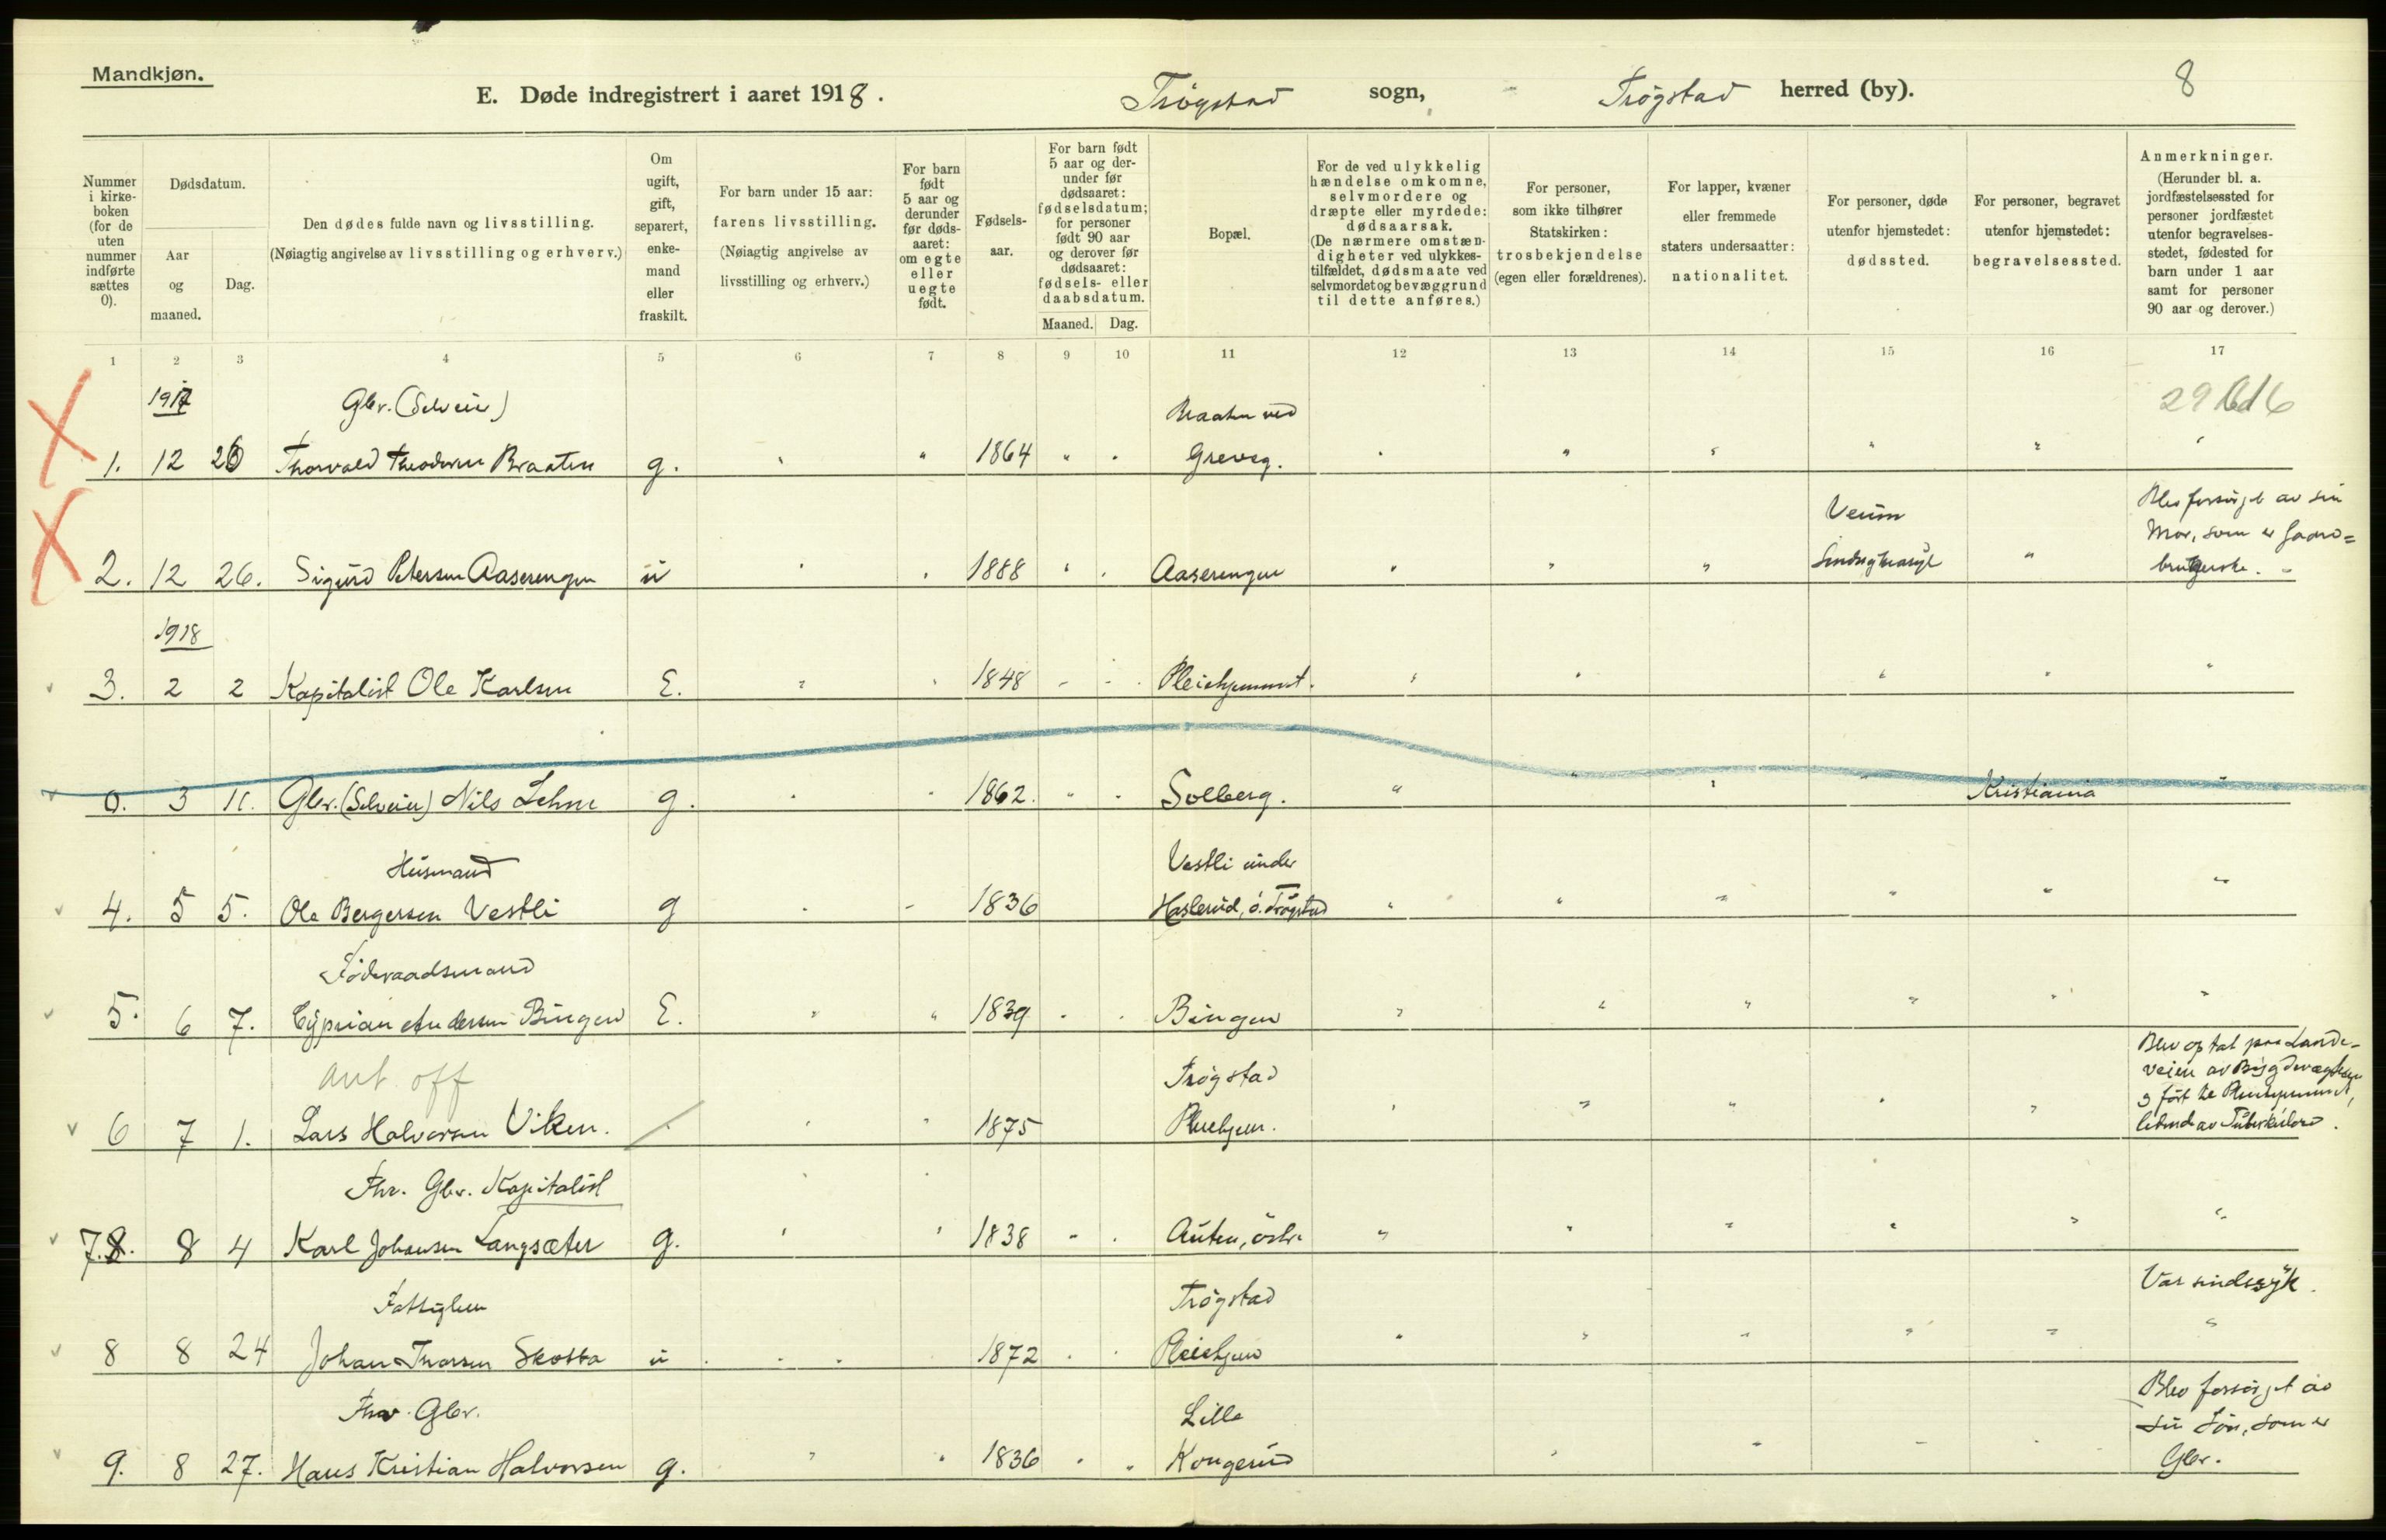 Mandkjøn.
E. Døde indregistrert i aaret 1918.
Trøgstad sogn,
Trøgstad herred (by).
8
Nummer i kirke-boken (for de uten nummer indførte sættes 0).
Dødsdatum.
Aar og maaned.
Dag.
Den dødes fulde navn og livsstilling.
(Nøiagtig angivelse av livsstilling og erhverv.)
Om ugift, gift, separert, enke-mand eller fraskilt.
For barn under 15 aar:
farens livsstilling.
(Nøiagtig angivelse av livsstilling og erhverv.)
For barn født 5 aar og derunder før døds-aaret: om egte eller uegte født.
Fødsels-aar.
For barn født 5 aar og der-under før dødsaaret: fødselsdatum; for personer født 90 aar og derover før dødsaaret: fødsels- eller daabsdatum.
Maaned.
Dag.
Bopæl.
For de ved ulykkelig hændelse omkomne, selvmordere og dræpte eller myrdede: dødsaarsak. (De nærmere omstæn-digheter ved ulykkes-tilfældet, dødsmaate ved selvmordet og bevæggrund til dette anføres.)
For personer, som ikke tilhører Statskirken: trosbekjendelse (egen eller forældrenes).
For lapper, kvæner eller fremmede staters undersaatter: nationalitet.
For personer, døde utenfor hjemstedet: dødssted.
For personer, begravet utenfor hjemstedet: begravelsessted.
Anmerkninger. (Herunder bl. a. jordfæstelsessted for personer jordfæstet utenfor begravelses-stedet, fødested for barn under 1 aar samt for personer 90 aar og derover.)
1 2 3 4 5 6 7 8 9 10 11 12 13 14 15 16 17
1917 Gbr. (Selveier) Braaten ved
1. 12 26 Thorvald Theodorsen Braaten g. " 1864 " Greveg. " " " " " "
Verim Blev forsørget av sin
Mor, som er Gaard=
2. 12 26. Sigurd Petersen Aaserengen u " " 1888 " " Aaserengen " " " Sindssykeasyl " brugerske. "
1918
3. 2 2 Kapitalist Ole Karlsen E. " " 1848 - - Pleiehjemmet. " " " " "
0. 3 11. Gbr. (Selveier) Nils Lehne g. " " 1862. " " Solberg. " " " " Kristiania "
Husmand Vestli under
4. 5 5. Ole Bergersen Vestli g " - 1836 Haslerud, ö. Trøgstad " " " " " "
Föderaadsmand
5. 6 7. Cyprian Andersen Bingen E. " " 1839 " " Bingen " " " " " "
Ant. off Trøgstad Blev optat paa Lande-
veien av Bygdevægteren
6 7 1. Lars Halvorsen Viken. " " 1875 Pleiehjem. " " " " " o ført til Pleiehjemmet,
lidende av Tuberkulose.
Fhv. Gbr. Kapitalist
7. 8 4 Karl Johansen Langsæter g. " " 1838 " " Auten, östre " " " " " "
Fattiglem Trøgstad Var sindssyk.
8 8 24 Johan Thorsen Skotta u " " 1872 " " Pleiehjem " " " " " "
Fhv. Gbr. Lille Blev forsørget av
sin Søn, som er
9. 8 27. Hans Kristian Halvorsen g. " " 1836 " " Kongerud " " " " Gbr.